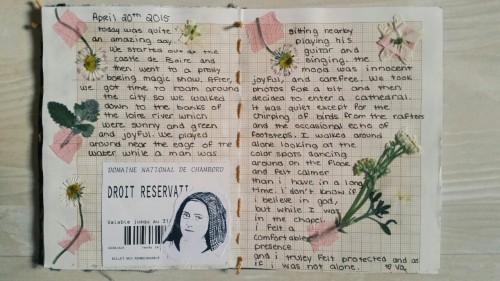 April 20th 2015
today was quite
an amazing day.
We started out at the
castle de Loire and
then went to a pretty
boring magic show. After,
we got time to roam around
the city so we walked
down to the banks of
the loire river which
were sunny and green
and joyful. We played
around near the edge of the
water while a man was
DOMAINE NATIONAL DE CHAMBORD
DROIT RESERVATI
Valable jusqu au 31/
BILLET NON REMBOURSABLE
sitting nearby
playing his
guitar and
singing. the
mood was innocent
joyful, and carefree. We took
photos for a bit and then
decided to enter a cathedral.
It was quiet except for the
chirping of birds from the rafters
and the occasional echo of
footsteps. I walked around
alone looking at the
color spots dancing
around on the floor
and felt calmer
than i have in a long
time. i don't know if
i believe in god,
but while I was
in the chapel,
i felt a
comfortable
presence
and i truley felt protected and as
if i was not alone.